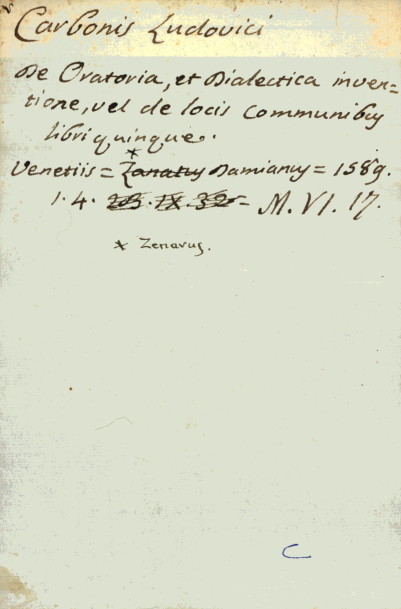 Carbonis Ludovici
De Oratoria, et Dialectica inven=
tione, vel de locis communibus
libri quinque.
*
Venetiis = Zanatus Damianus = 1589.
1. 4. 203. IX. 32 = M. VI. 17.
* Zenarus.
C